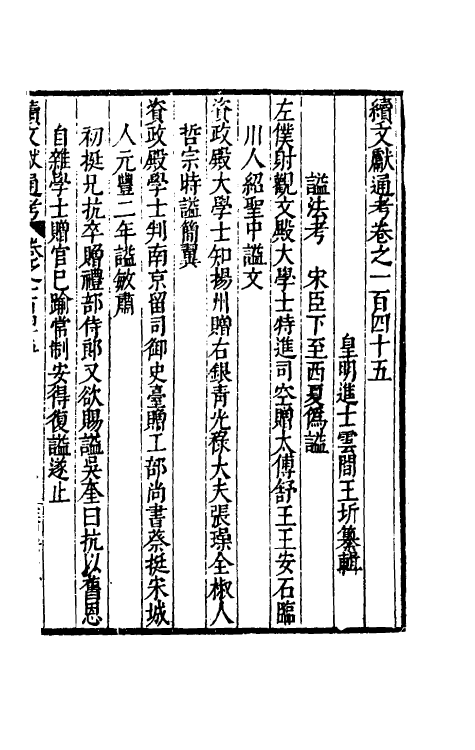 續文獻通考卷之一百四十五
皇明進士雲間王圻纂輯
謚法考　宋臣下至西夏僞謚
左僕射觀文殿大學士特進司空贈太傅舒王王安石臨
川人紹聖中謚文
資政殿大學士知揚州贈右銀青光祿大夫張璪全椒人
哲宗時謚簡翼
資政殿學士判南京留司御史臺贈工部尚書蔡挺宋城
人元豐二年謚敏肅
初挺兄抗卒贈禮部侍郎又欲賜謚吳奎曰抗以舊恩
自雜學士贈官已踰常制安得復謚遂止
續文獻通考 卷之一百四十五